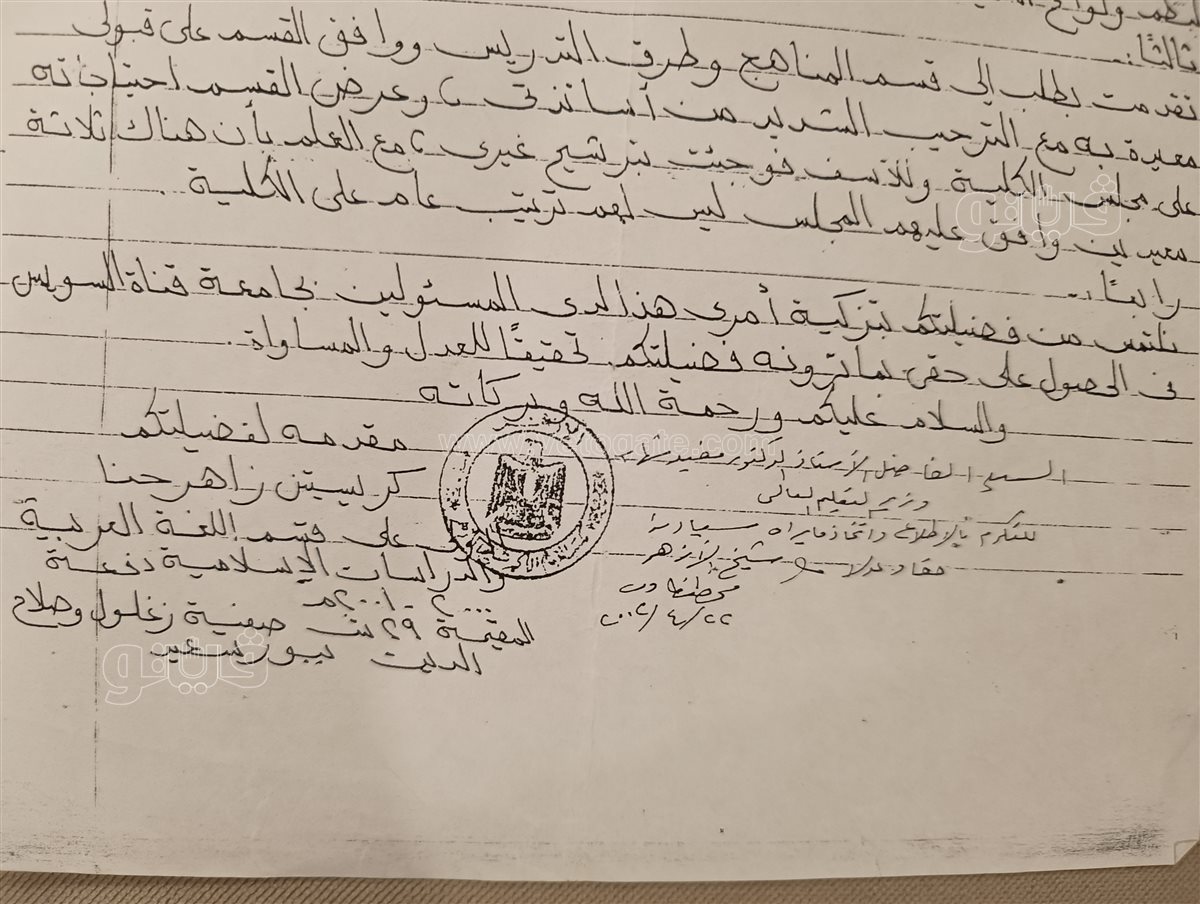 ثالثًا:..
تقدمت بطلب إلى قسم المناهج وطرق التدريس ووافق القسم على قبولى
معيدة به مع الترحيب الشديد من أساتذتى ، وعرض القسم احتياجاته
على مجلس الكلية وللأسف فوجئت بترشيح غيرى ، مع العلم بأن هناك ثلاثة
معيدين وافق عليهم المجلس ليس لهم ترتيب عام على الكلية .
رابعًا:..
نلتمس من فضيلتكم بتزكية أمرى هذا لدى المسئولين بجامعة قناة السويس
فى الحصول على حقى بما ترونه فضيلتكم تحقيقًا للعدل والمساواة .
والسلام عليكم ورحمة الله وبركاته
مقدمه لفضيلتكم
كريستين زاهر حنا
على قسم اللغة العربية
والدراسات الإسلامية دفعة
٢٠٠٠ - ٢٠٠١م
المقيمة ٢٩ ش صفية زغلول وصلاح
الدين ببورسعيد
السيد الفاضل الأستاذ الدكتور مفيد شهاب
وزير التعليم العالى
للتكرم بالإطلاع واتخاذ مايراه سيادته
حقا وعدلا شيخ الأزهر
٢٢/٤/٢٠٠٢
فيتو
www.vetogate.com
فيتو